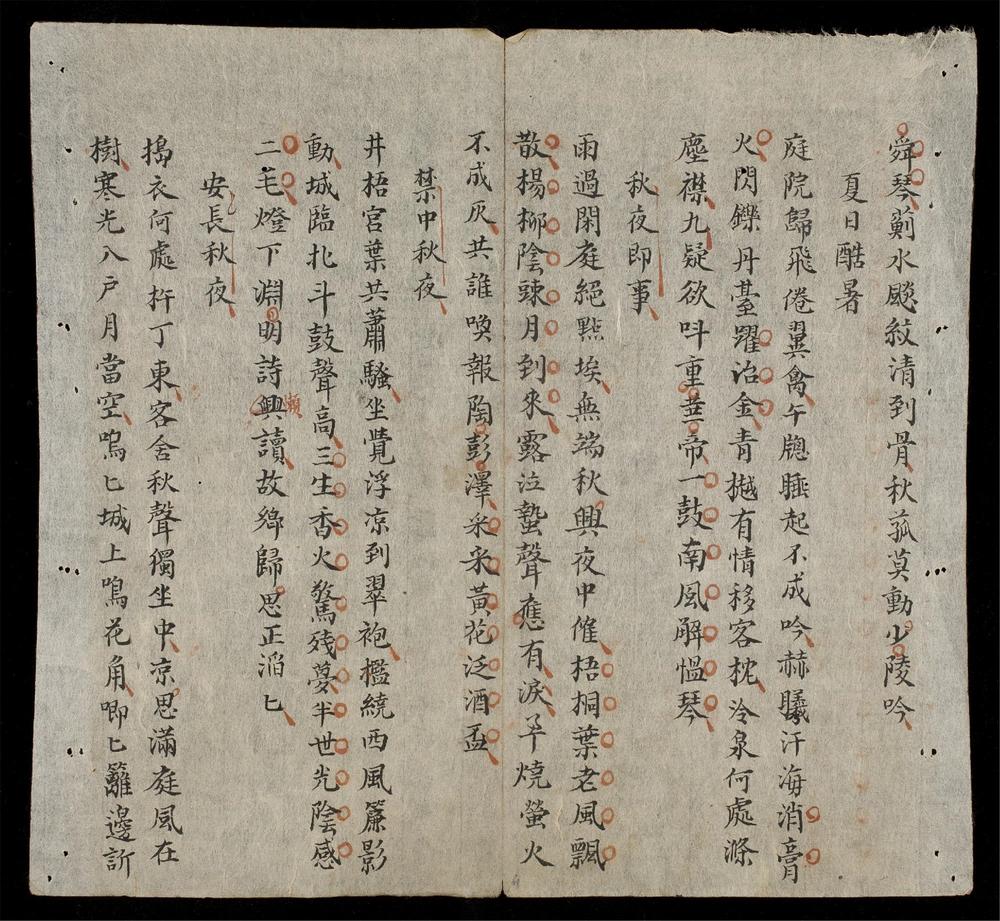 舜琴薊水颸紋清到骨秋菰莫動少陵吟
夏日酷暑
庭院歸飛倦翼禽午牕睡起不成吟赫曦汗海消膏
火閃鑠丹臺躍冶金青樾有情移客枕冷泉何處滌
塵襟九疑欲呌重華帝一鼓南風解愠琴
秋夜即事
雨過閑庭絕點埃無端秋興夜中催梧桐葉老風飄
散楊柳陰疎月到來露泣蛩聲應有淚草燒螢火
不成灰共誰喚報陶彭澤采采黃花泛酒盃
禁中秋夜
井梧宮葉共蕭騷坐覺浮凉到翠袍檻繞西風簾影
動城臨北斗鼓聲高三生香火驚殘夢半世光陰感
二毛燈下淵明詩興讀故鄉歸思正滔匕
懶
安長秋夜
搗衣何處杵丁東客舍秋聲獨坐中凉思滿庭風在
樹寒光入戶月當空嗚匕城上鳴花角唧匕籬邊訴